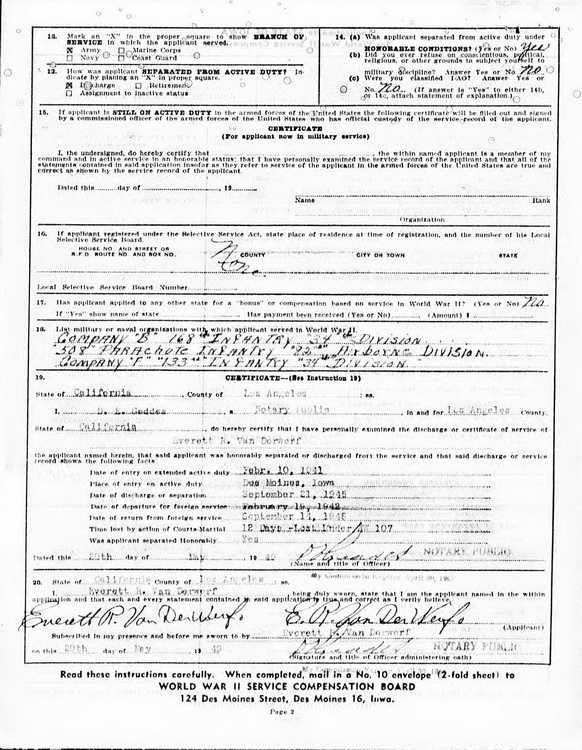 13. Mark an "X" in the proper square to show BRANCH OF
SERVICE in which the applicant served.
☒ Army ☐ Marine Corps
☐ Navy ☐ Coast Guard
12. How was applicant SEPARATED FROM ACTIVE DUTY? In-
dicate by placing an "X" in proper square.
☒ Discharge ☐ Retirement
☐ Assignment to inactive status
14. (a) Was applicant separated from active duty under
HONORABLE CONDITIONS? (Yes or No) Yes
(b) Did you ever refuse on conscientious, political,
religious, or other grounds to subject yourself to
military discipline? Answer Yes or No No
(c) Were you classified I-AO? Answer Yes or
No. No (If answer is "Yes" to either 14b,
or 14c, attach statement of explanation.)
15. If applicant is STILL ON ACTIVE DUTY in the armed forces of the United States the following certificate will be filled out and signed
by a commissioned officer of the armed forces of the United States who has official custody of the service record of the applicant.
CERTIFICATE
(For applicant now in military service)
I, the undersigned, do hereby certify that , the within named applicant is a member of my
command and in active service in an honorable status; that I have personally examined the service record of the applicant and that all of the
statements contained in said application insofar as they refer to service of the applicant in the armed forces of the United States are true and
correct as shown by the service record of the applicant.
Dated this day of , 19
Name Rank
Organization
16. If applicant registered under the Selective Service Act, state place of residence at time of registration, and the number of his Local
Selective Service Board.
HOUSE NO. AND STREET OR
R.F.D. ROUTE NO. AND BOX NO. COUNTY CITY OR TOWN STATE
No.
Local Selective Service Board Number
17. Has applicant applied to any other state for a "bonus" or compensation based on service in World War II? (Yes or No) No
If "Yes" show name of state Has payment been received (Yes or No) (Amount) $
18. List military or naval organizations with which applicant served in World War II.
COMPANY "B" 168TH INFANTRY 34TH DIVISION
508TH PARACHUTE INFANTRY "82ND" AIRBORNE DIVISION.
COMPANY "F" "133RD" INFANTRY "34TH DIVISION.
19. CERTIFICATE—(See Instruction 19)
State of California, County of Los Angeles : ss.
I, D. L. Geddes, a Notary Public in and for Los Angeles County
State of California, do hereby certify that I have personally examined the discharge or certificate of service of
Everett R. Van Derwerf
the applicant named herein, that said applicant was honorably separated or discharged from the service and that said discharge or service
record shows the following facts:
Date of entry on extended active duty Febr. 10, 1941
Place of entry on active duty Des Moines, Iowa
Date of discharge or separation September 21, 1945
Date of departure for foreign service February 15, 1942
Date of return from foreign service September 14, 1945
Time lost by action of Courts-Martial 12 Days-Lost Under AW 107
Was applicant separated Honorably Yes
Dated this 20th day of May, 1949
NOTARY PUBLIC
(Name and title of Officer)
20. State of California County of Los Angeles : ss.
I, Everett R. Van Derwerf being duly sworn, state that I am the applicant named in the within
application and that each and every statement contained in said application is true and correct as I verily believe.
Everett R. Van DerWerf E. R. Van DerWerf (Applicant)
Everett R. Van Derwerf
Subscribed in my presence and before me sworn to by
on this 20th day of May, 1949 NOTARY PUBLIC
(Signature and title of Officer administering oath)
Read these instructions carefully. When completed, mail in a No. 10 envelope (2-fold sheet) to
WORLD WAR II SERVICE COMPENSATION BOARD
124 Des Moines Street, Des Moines 16, Iowa.
Page 2